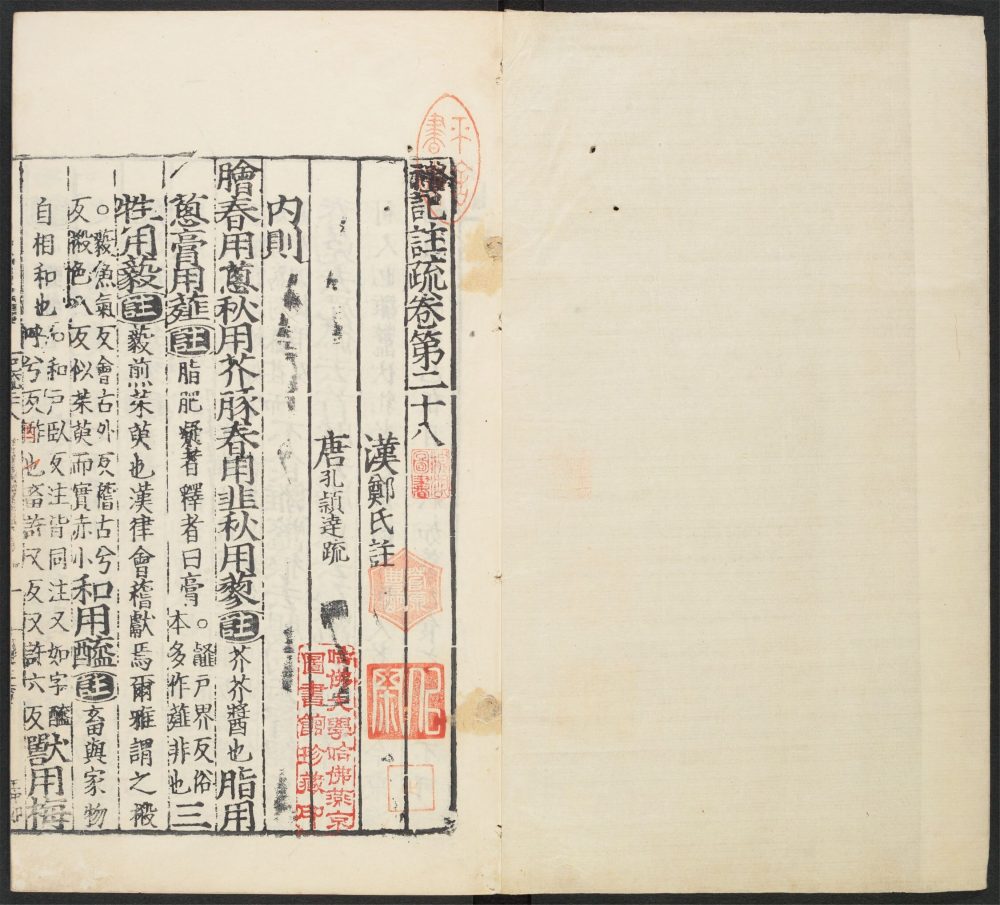 禮記註疏卷第二十八
漢鄭氏註
唐孔穎達疏
內則
膾春用蔥秋用芥豚春用韭秋用蓼註芥芥醬也脂用
蔥膏用薤註脂肥凝者釋者曰膏。䪥戶界反俗本多作薤非也三
牲用藙註藙煎茱萸也漢律會稽獻焉爾雅謂之榝
。藙魚氣反會古外反稽古兮反榝色八反似茱萸而實赤小和用醯註畜與家物
自相和也和戶臥反注皆同注又如字醯呼兮反酢也畜許又反又許六反獸用梅
哈佛大學哈佛燕京
圖書館珍藏印